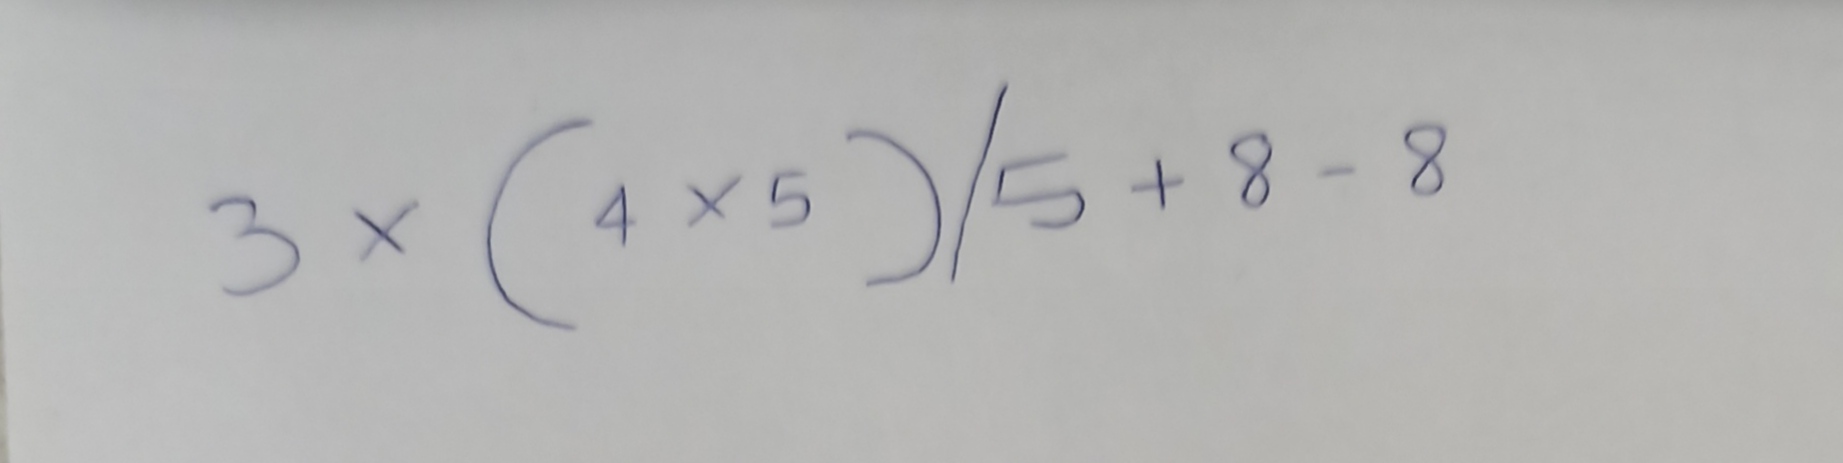 3 × (4 × 5)/5 + 8 - 8